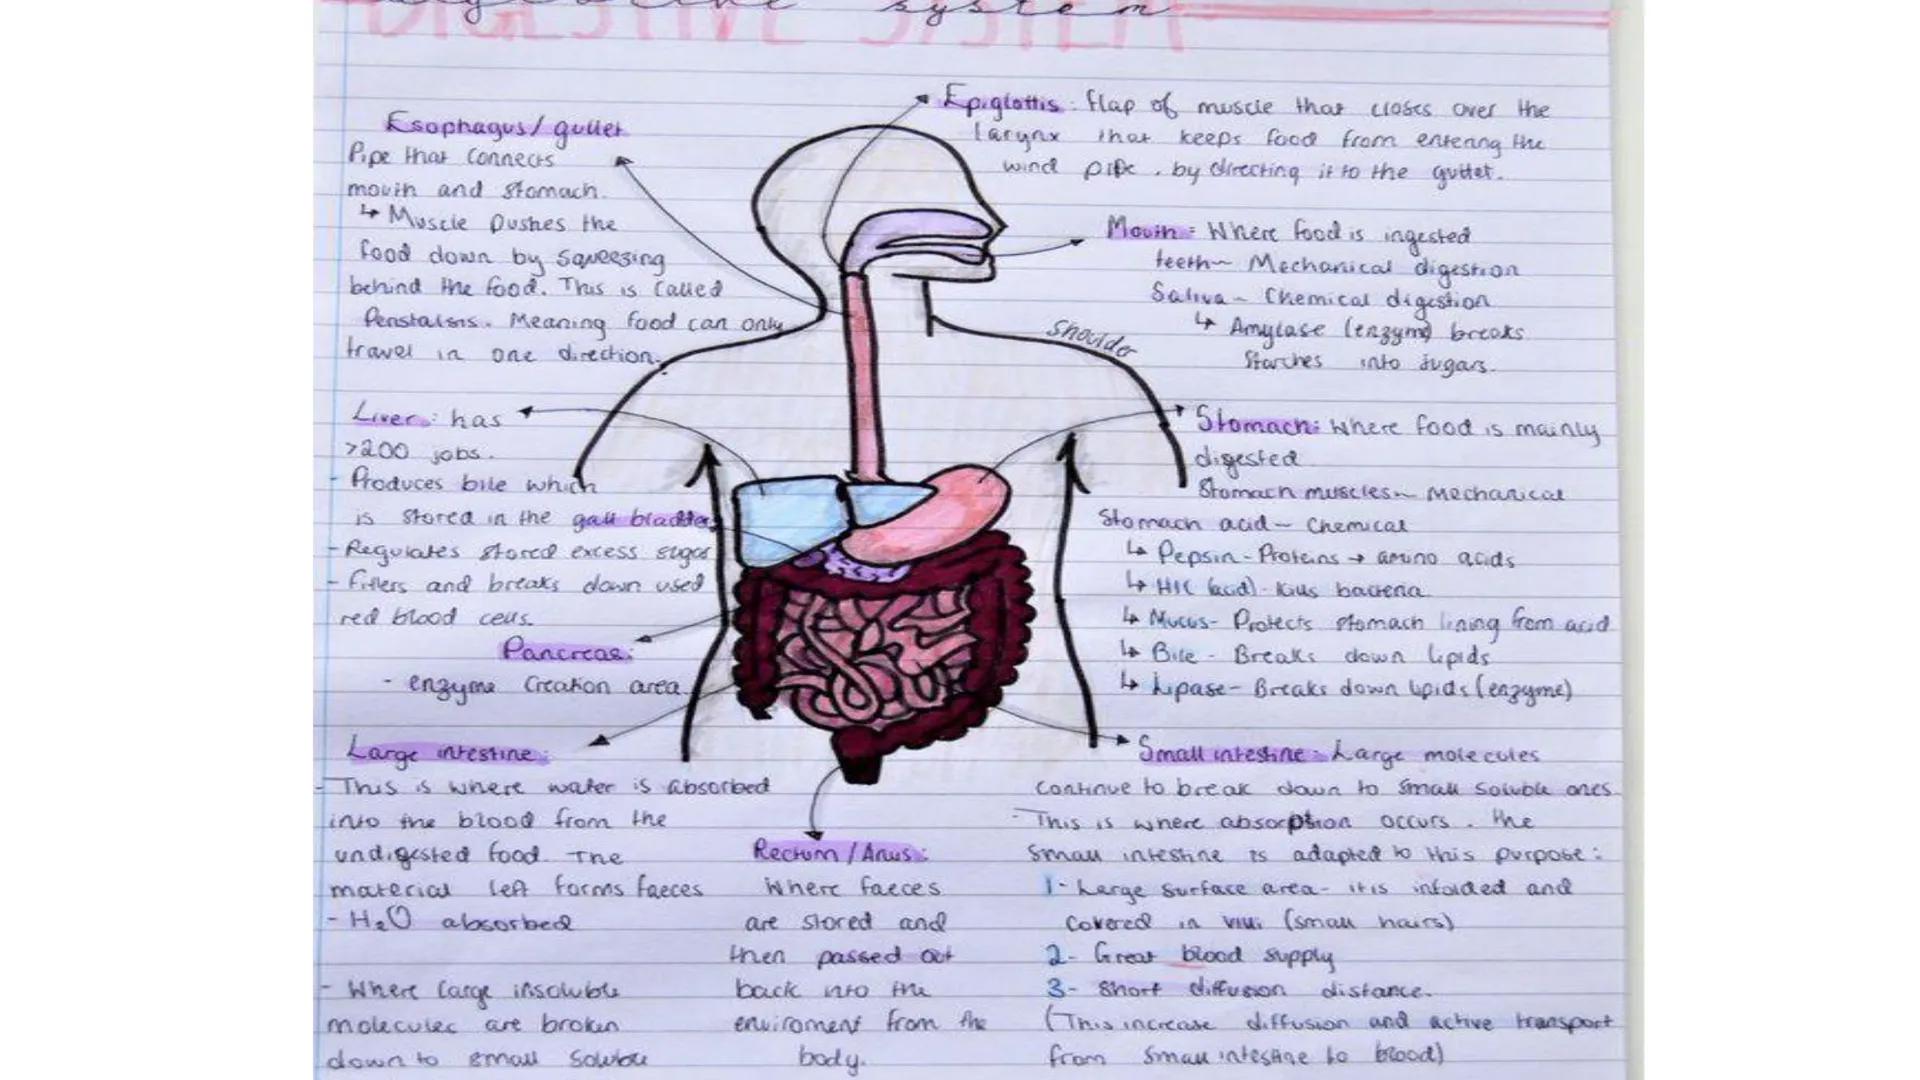 system
DIGESTIVE SYSTEM
Esophagus/gullet
Pipe that connects
mouth and stomach.
↳ Muscle pushes the
food down by squeezing
behind the food. This is called
Peristalsis. Meaning food can only
travel in one direction.
Epiglottis: flap of muscle that closes over the
larynx that keeps food from entering the
wind pipe, by directing it to the gullet.
Mouth: Where food is ingested
teeth~ Mechanical digestion
Saliva~ Chemical digestion
↳ Amylase (enzyme) breaks
Starches into sugars.
shoulder
Liver: has
>200 jobs.
- Produces bile which
is stored in the gall bladder
- Regulates stored excess sugar
- filters and breaks down used
red blood cells.
Stomach: Where food is mainly
digested
Stomach muscles~ Mechanical
Stomach acid~ Chemical
↳ Pepsin - Proteins → amino acids
↳ (acid) - kills bacteria
↳ Mucus- Protects stomach lining from acid
↳ Bile - Breaks down lipids
↳ Lipase- Breaks down lipids (enzyme)
Pancreas:
- enzyme creation area
Large intestine:
- This is where water is absorbed
into the blood from the
undigested food. The
material left forms faeces
- H₂O absorbed
- Where large insoluble
molecules are broken
down to small soluble
Rectum/Anus:
Where faeces
are stored and
then passed out
back into the
enviroment from the
body.
Small intestine: Large molecules
continue to break down to small soluble ones
- This is where absorption occurs. The
small intestine is adapted to this purpose:
1- Large surface area- it is infolded and
covered in villi (small hairs)
2- Great blood supply
3- Short diffusion distance.
(This increase diffusion and active transport
from small intestine to blood)